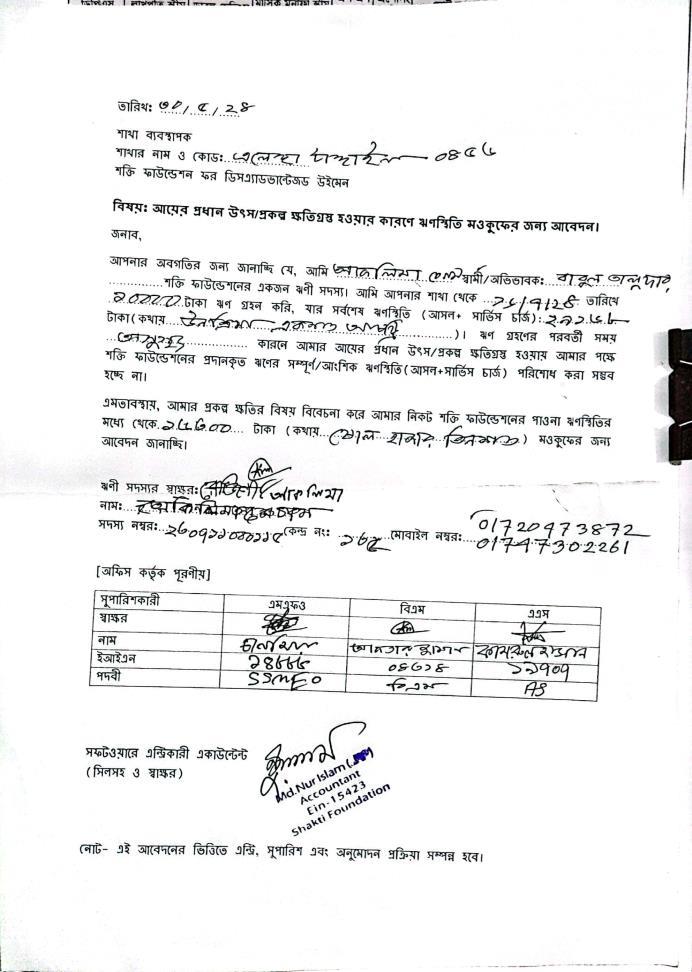 তারিখ: ৩০/৫/২৪
শাখা ব্যবস্থাপক
শাখার নাম ও কোড: এলেঙ্গা টাঙ্গাইল - ০৪৫৬
শক্তি ফাউন্ডেশন ফর ডিসএ্যাডভান্টেজড উইমেন
বিষয়: আয়ের প্রধান উৎস/প্রকল্প ক্ষতিগ্রস্থ হওয়ার কারণে ঋণস্থিতি মওকুফের জন্য আবেদন।
জনাব,
আপনার অবগতির জন্য জানাচ্ছি যে, আমি আকলিমা স্বামী/অভিভাবক: বাবুল তালুকদার
শক্তি ফাউন্ডেশনের একজন ঋণী সদস্য। আমি আপনার শাখা থেকে তারিখে
টাকা ঋণ গ্রহন করি, যার সর্বশেষ ঋণস্থিতি (আসল+ সার্ভিস চার্জ):
টাকা (কথায় )। ঋণ গ্রহণের পরবর্তী সময়
কারনে আমার আয়ের প্রধান উৎস/প্রকল্প ক্ষতিগ্রস্থ হওয়ায় আমার পক্ষে
শক্তি ফাউন্ডেশনের প্রদানকৃত ঋণের সম্পূর্ণ/আংশিক ঋণস্থিতি (আসল+সার্ভিস চার্জ) পরিশোধ করা সম্ভব
হচ্ছে না।
এমতাবস্থায়, আমার প্রকল্প ক্ষতির বিষয় বিবেচনা করে আমার নিকট শক্তি ফাউন্ডেশনের পাওনা ঋণস্থিতির
মধ্যে থেকে ১৬৩০০ টাকা (কথায় ষোল হাজার তিনশত) মওকুফের জন্য
আবেদন জানাচ্ছি।
ঋণী সদস্যর স্বাক্ষর: আকলিমা
নাম:
সদস্য নম্বর: কেন্দ্র নং: মোবাইল নম্বর: 01720473872
01747302261
[অফিস কর্তৃক পূরণীয়]
সুপারিশকারী এমএফও বিএম এএস
স্বাক্ষর
নাম
ইআইএন ১৪৮৮৮ ০৪৬১৪ ১১৭০৭
পদবী SSMFO বিএম AS
সফটওয়ারে এন্ট্রিকারী একাউন্টেন্ট
(সিলসহ ও স্বাক্ষর)
Md.Nur Islam
Accountant
Ein-15423
Shakti Foundation
নোট- এই আবেদনের ভিত্তিতে এন্ট্রি, সুপারিশ এবং অনুমোদন প্রক্রিয়া সম্পন্ন হবে।